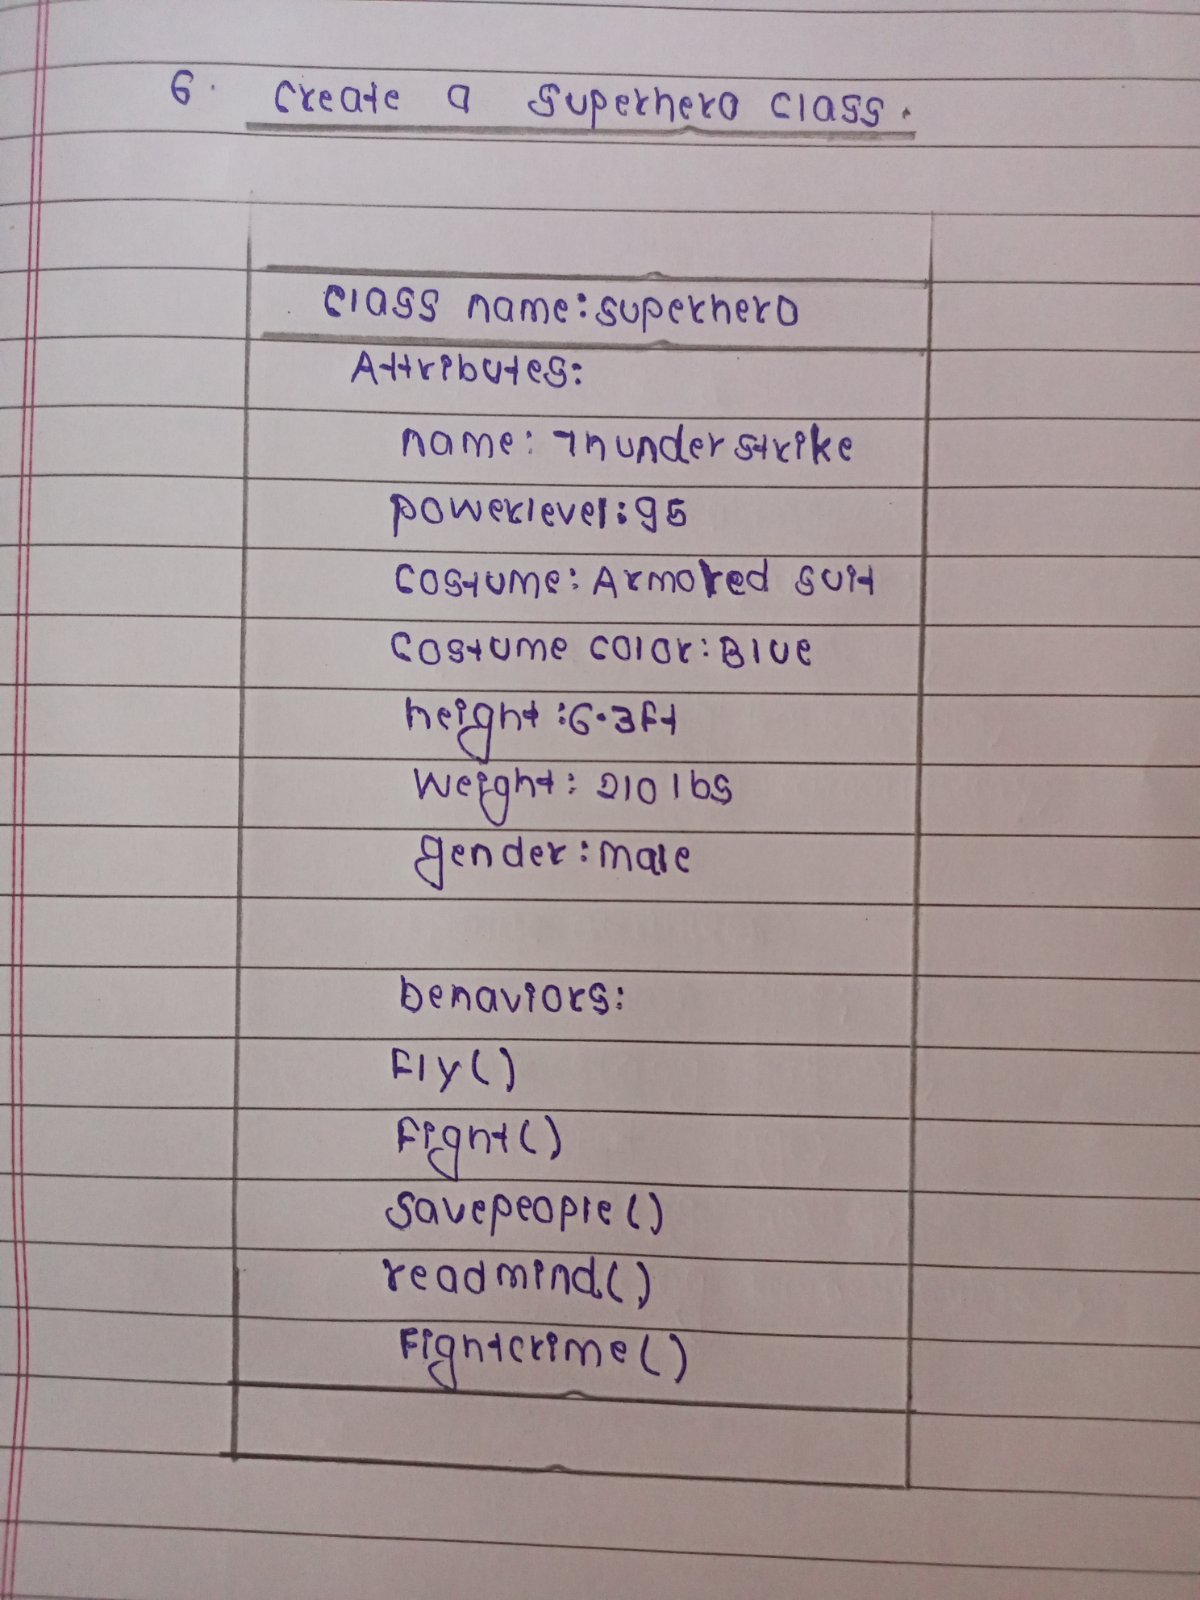 6. Create a superhero class.
class name: superhero
Attributes:
name: Thunder strike
powerlevel: 95
costume: Armored suit
costume color: Blue
height: 6.3ft
Weight: 210 lbs
gender: male
behaviors:
Fly()
Fight()
savepeople()
readmind()
Fightcrime()